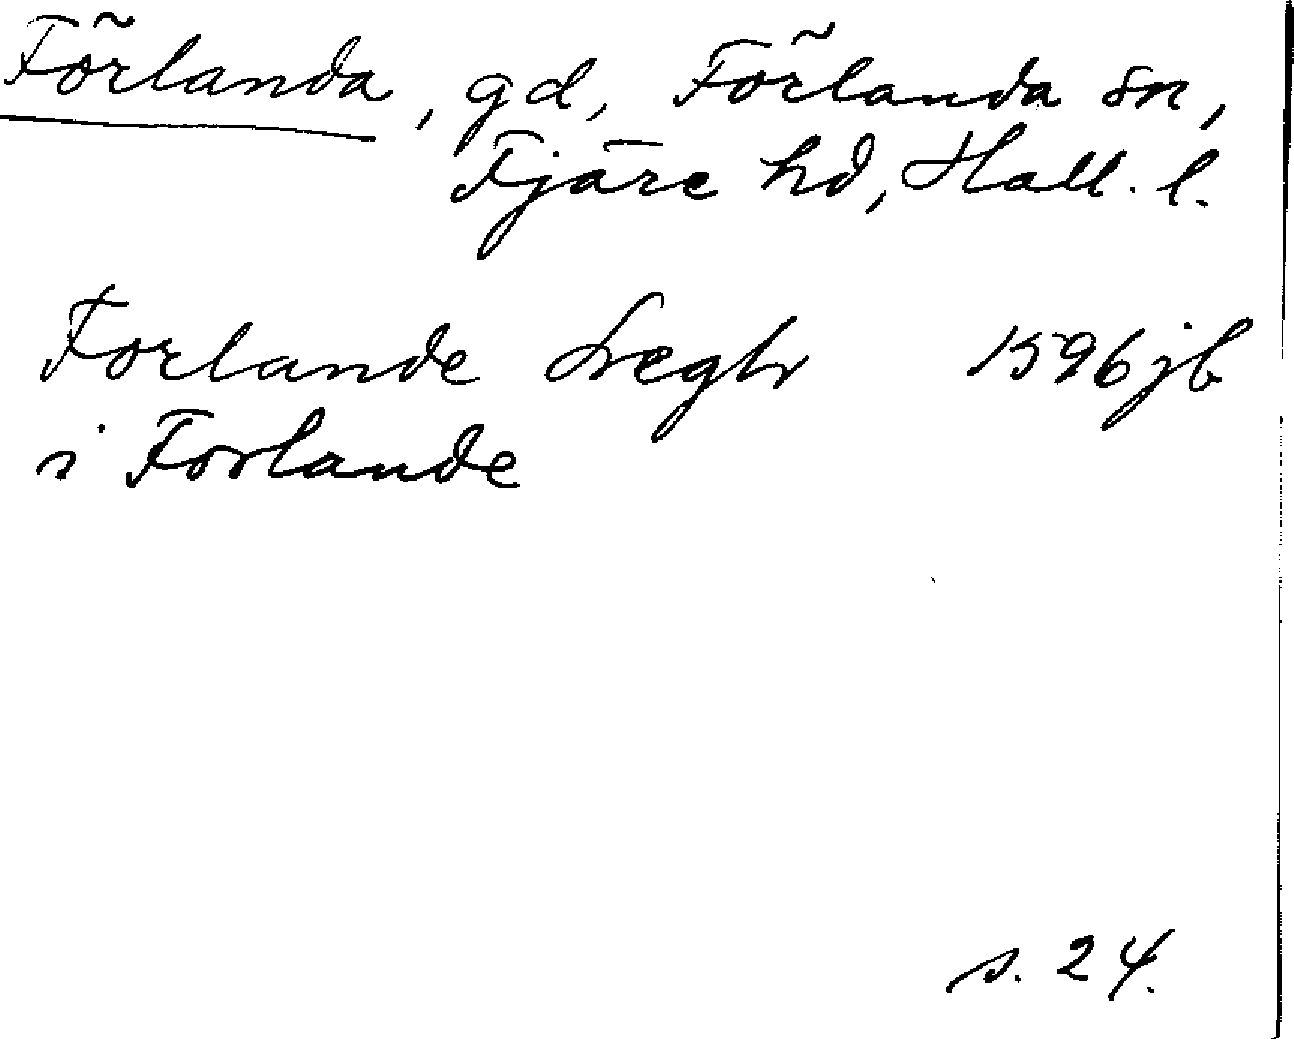 Förlanda, gd, Förlanda sn,
Fjäre hd, Hall. l.
Forlande Sregh 1596 jb
i Forlande
s. 24.